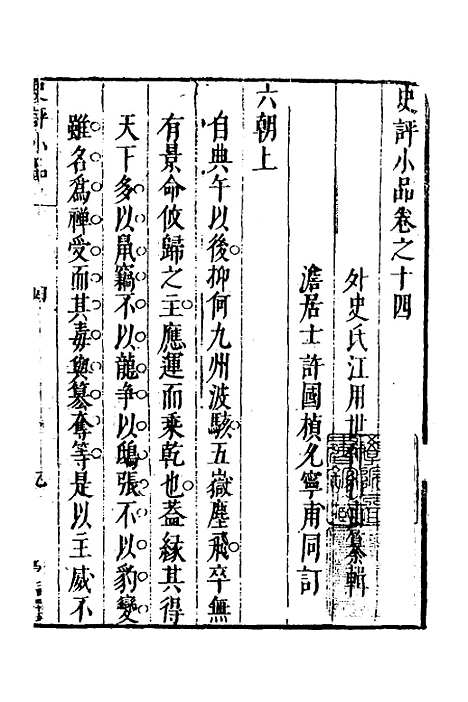 史評小品卷之十四
外史氏江用世纂輯
澹居士許國楨允寧甫同訂
六朝上
自典午以後抑何九州波駭五嶽塵飛卒無
有景命攸歸之主應運而乘乾也蓋緣其得
天下多以鼠竊不以龍爭以鴟張不以豹變
雖名爲禪受而其毒與篡奪等是以主威不
史評小品